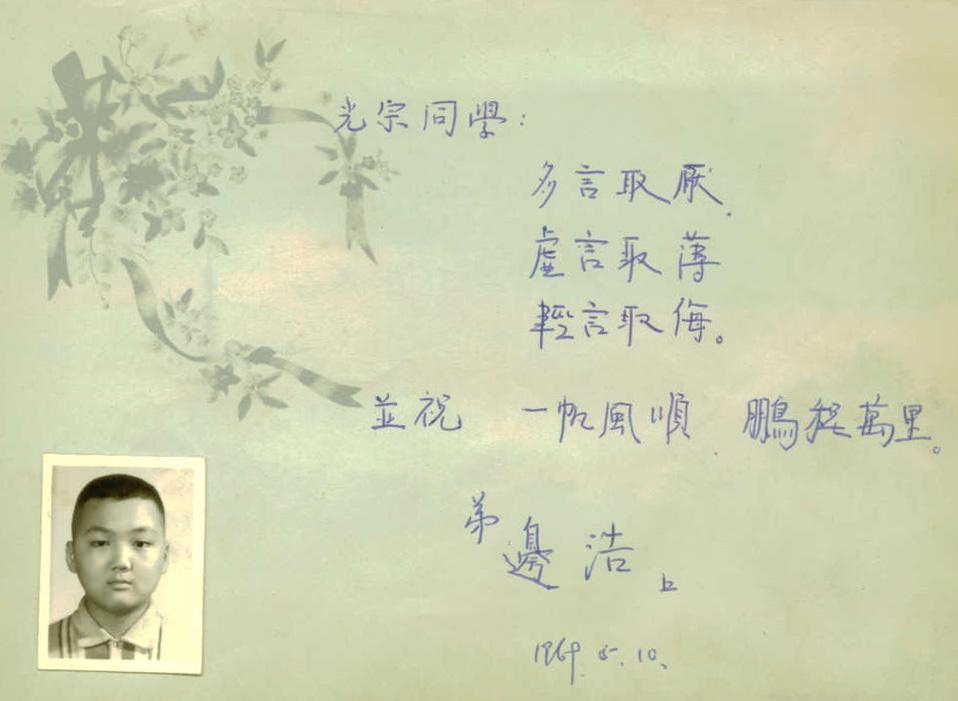 光宗同學：
多言取厭．
虛言取薄
輕言取侮。
並祝 一帆風順 鵬程萬里。
弟 邊浩 上
1969. 5. 10.